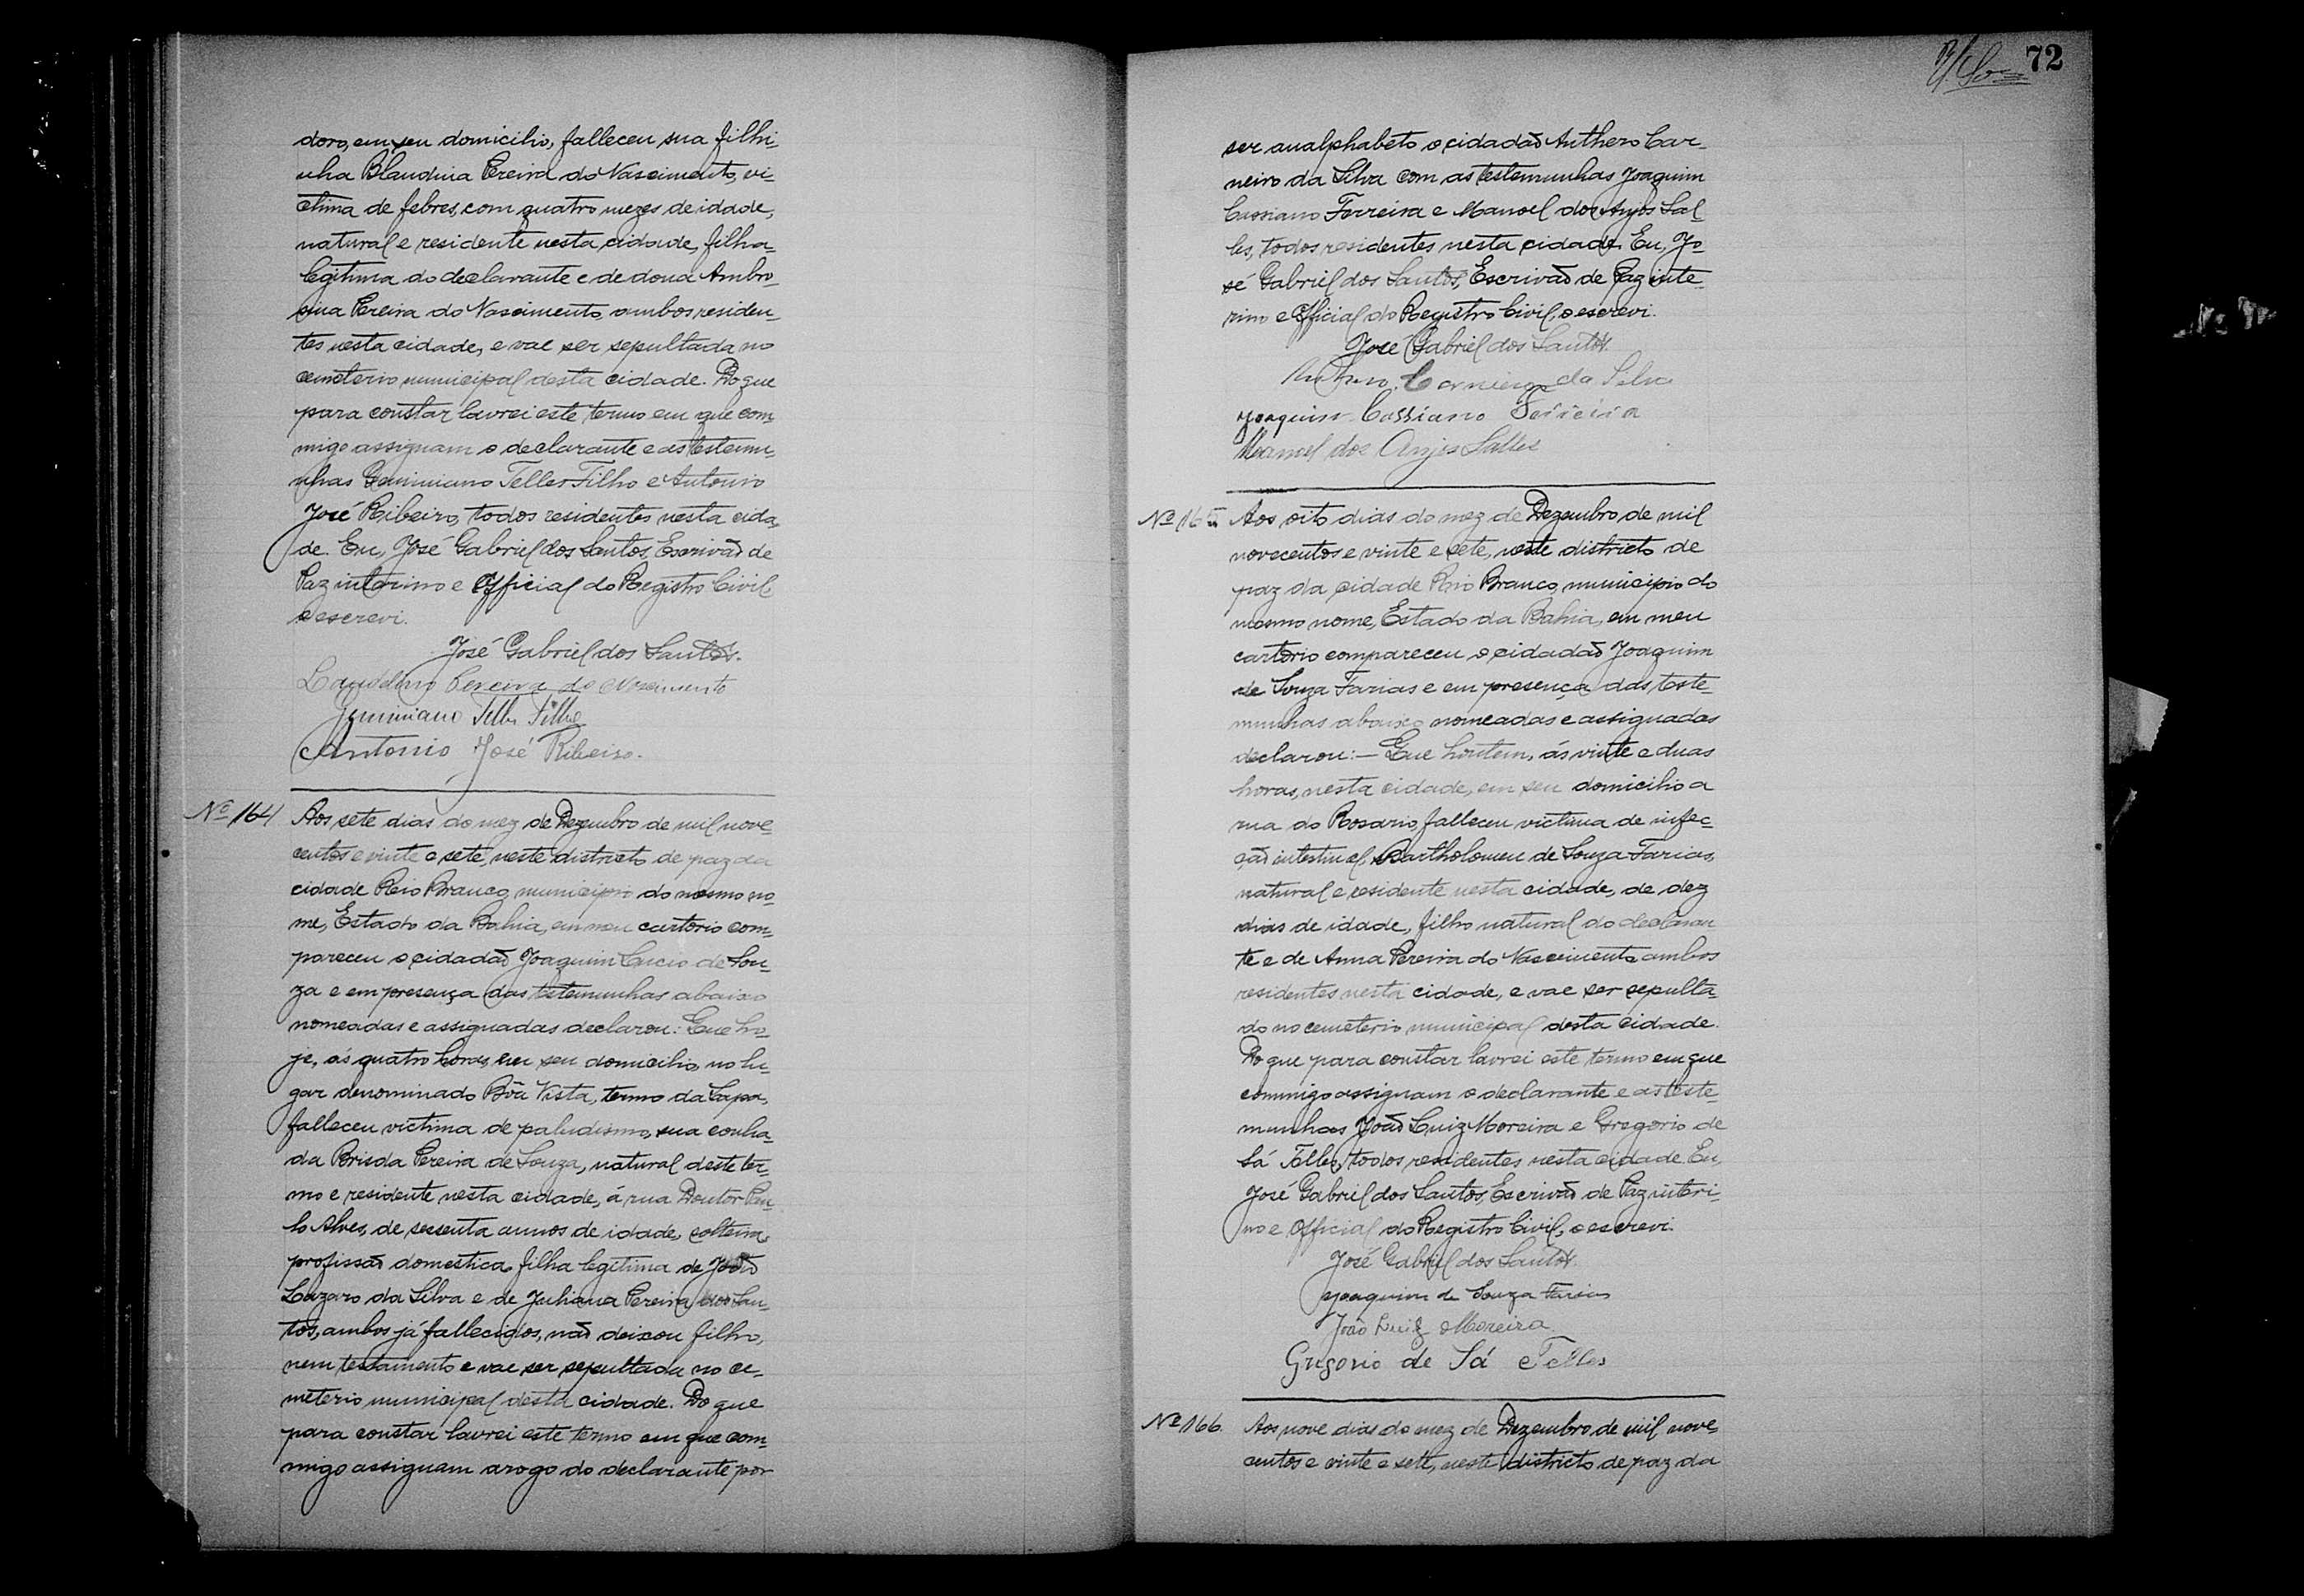 doro, em seu domicilio, falleceu sua filhi-
nha Blandina Pereira do Nascimento, vi-
ctima de febres, com quatro mezes de idade,
natural e residente nesta cidade, filha
legitima do declarante e de dona Ambro-
sina Pereira do Nascimento, ambos residen-
tes nesta cidade, e vae ser sepultada no
cemeterio municipal desta cidade. Do que
para constar lavrei este termo em que com-
migo assignam o declarante e as testemu-
nhas Geminiano Telles Filho e Antonio
José Ribeiro, todos residentes nesta cida-
de. Eu, José Gabriel dos Santos, Escrivão de
Paz interino e Official do Registro Civil,
o escrevi.
José Gabriel dos Santos.
Laudelino Pereira do Nascimento
Geminiano Telles Filho
Antonio José Ribeiro.
Nº 164 Aos sete dias do mez de Dezembro de mil nove-
centos e vinte e sete, neste districto de paz da
cidade Rio Branco, municipio do mesmo no-
me, Estado da Bahia, em meu cartorio com-
pareceu o cidadão Joaquim Lucio de Sou-
za e em presença das testemunhas abaixo
nomeadas e assignadas declarou: Que ho-
je, ás quatro horas, em seu domicilio, no lu-
gar denominado Bôa Vista, termo da Lapa,
falleceu victima de paludismo, sua cunha-
da Brisda Pereira de Souza, natural deste ter-
mo e residente nesta cidade, á rua Doutor Pau-
lo Alves, de sessenta annos de idade, solteira,
profissão domestica, filha legitima de João
Lazaro da Silva e de Juliana Pereira dos San-
tos, ambos já fallecidos, não deixou filho,
nem testamento e vae ser sepultada no ce-
meterio municipal desta cidade. Do que
para constar lavrei este termo em que com-
migo assignam arogo do declarante por
72
ser analphabeto o cidadão Anthero Car-
neiro da Silva com as testemunhas Joaquim
Cassiano Ferreira e Manoel dos Anjos Sal-
les, todos residentes nesta cidade. Eu, Jo-
sé Gabriel dos Santos, Escrivão de Paz inte-
rino e Official do Registro Civil, o escrevi.
José Gabriel dos Santos.
Anthero Carneiro da Silva
Joaquim Cassiano Ferreira
Manoel dos Anjos Salles
Nº 165 Aos oito dias do mez de Dezembro de mil
novecentos e vinte e sete, neste districto de
paz da cidade Rio Branco, municipio do
mesmo nome, Estado da Bahia, em meu
cartorio compareceu o cidadão Joaquim
de Souza Farias e em presença das teste-
munhas abaixo nomeadas e assignadas
declarou:— Que hontem, ás vinte e duas
horas, nesta cidade, em seu domicilio a
rua do Rosario, falleceu victima de infec-
ção intestinal, Bartholomeu de Souza Farias,
natural e residente nesta cidade, de dez
dias de idade, filho natural do declaran
te e de Anna Pereira do Nascimento ambos
residentes nesta cidade, e vae ser sepulta-
do no cemeterio municipal desta cidade.
Do que para constar lavrei este termo em que
commigo assignam o declarante e as teste-
munhas João Luiz Moreira e Gregorio de
Sá Telles, todos residentes nesta cidade. Eu,
José Gabriel dos Santos, Escrivão de Paz interi-
no e Official do Registro Civil, o escrevi.
José Gabriel dos Santos.
Joaquim de Souza Farias
João Luiz Moreira
Gregorio de Sá Telles
Nº 166. Aos nove dias do mez de Dezembro de mil nove-
centos e vinte e sete, neste districto de paz da